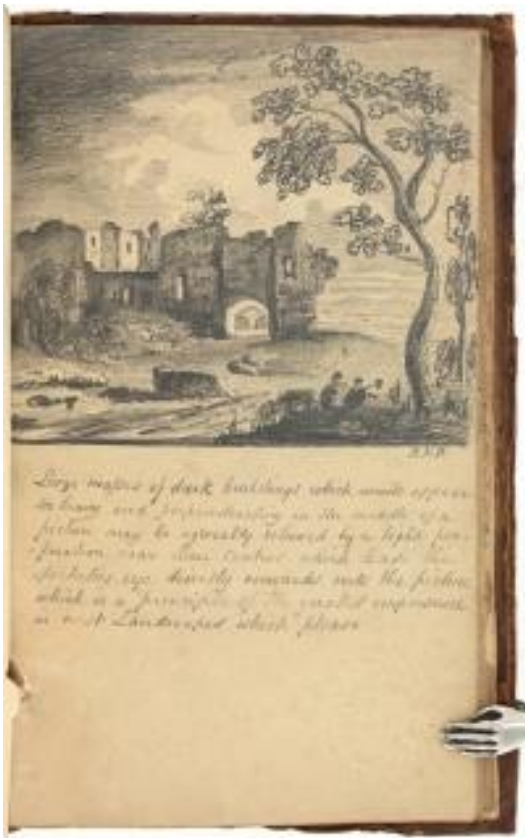 Large masses of dark buildings which would appear
heavy and in the middle of a
picture may be agreeably relieved by a light
near their centres which lead the
eye directly onwards into the picture
which is a principle of the greatest importance
in Landscapes which please